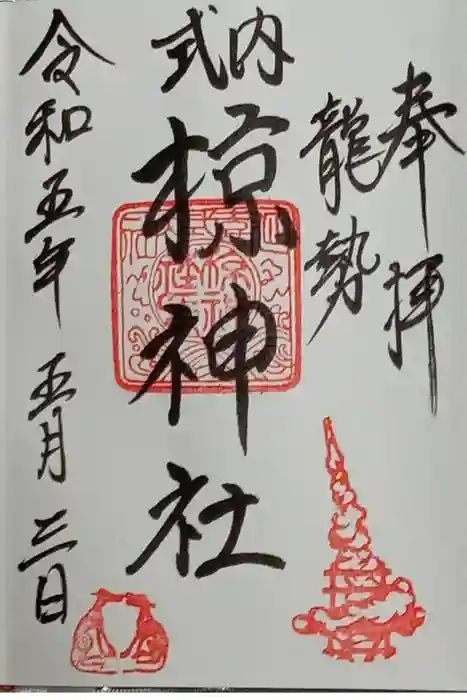 奉拝
龍勢
式内
椋神社
令和五年 五月 三日